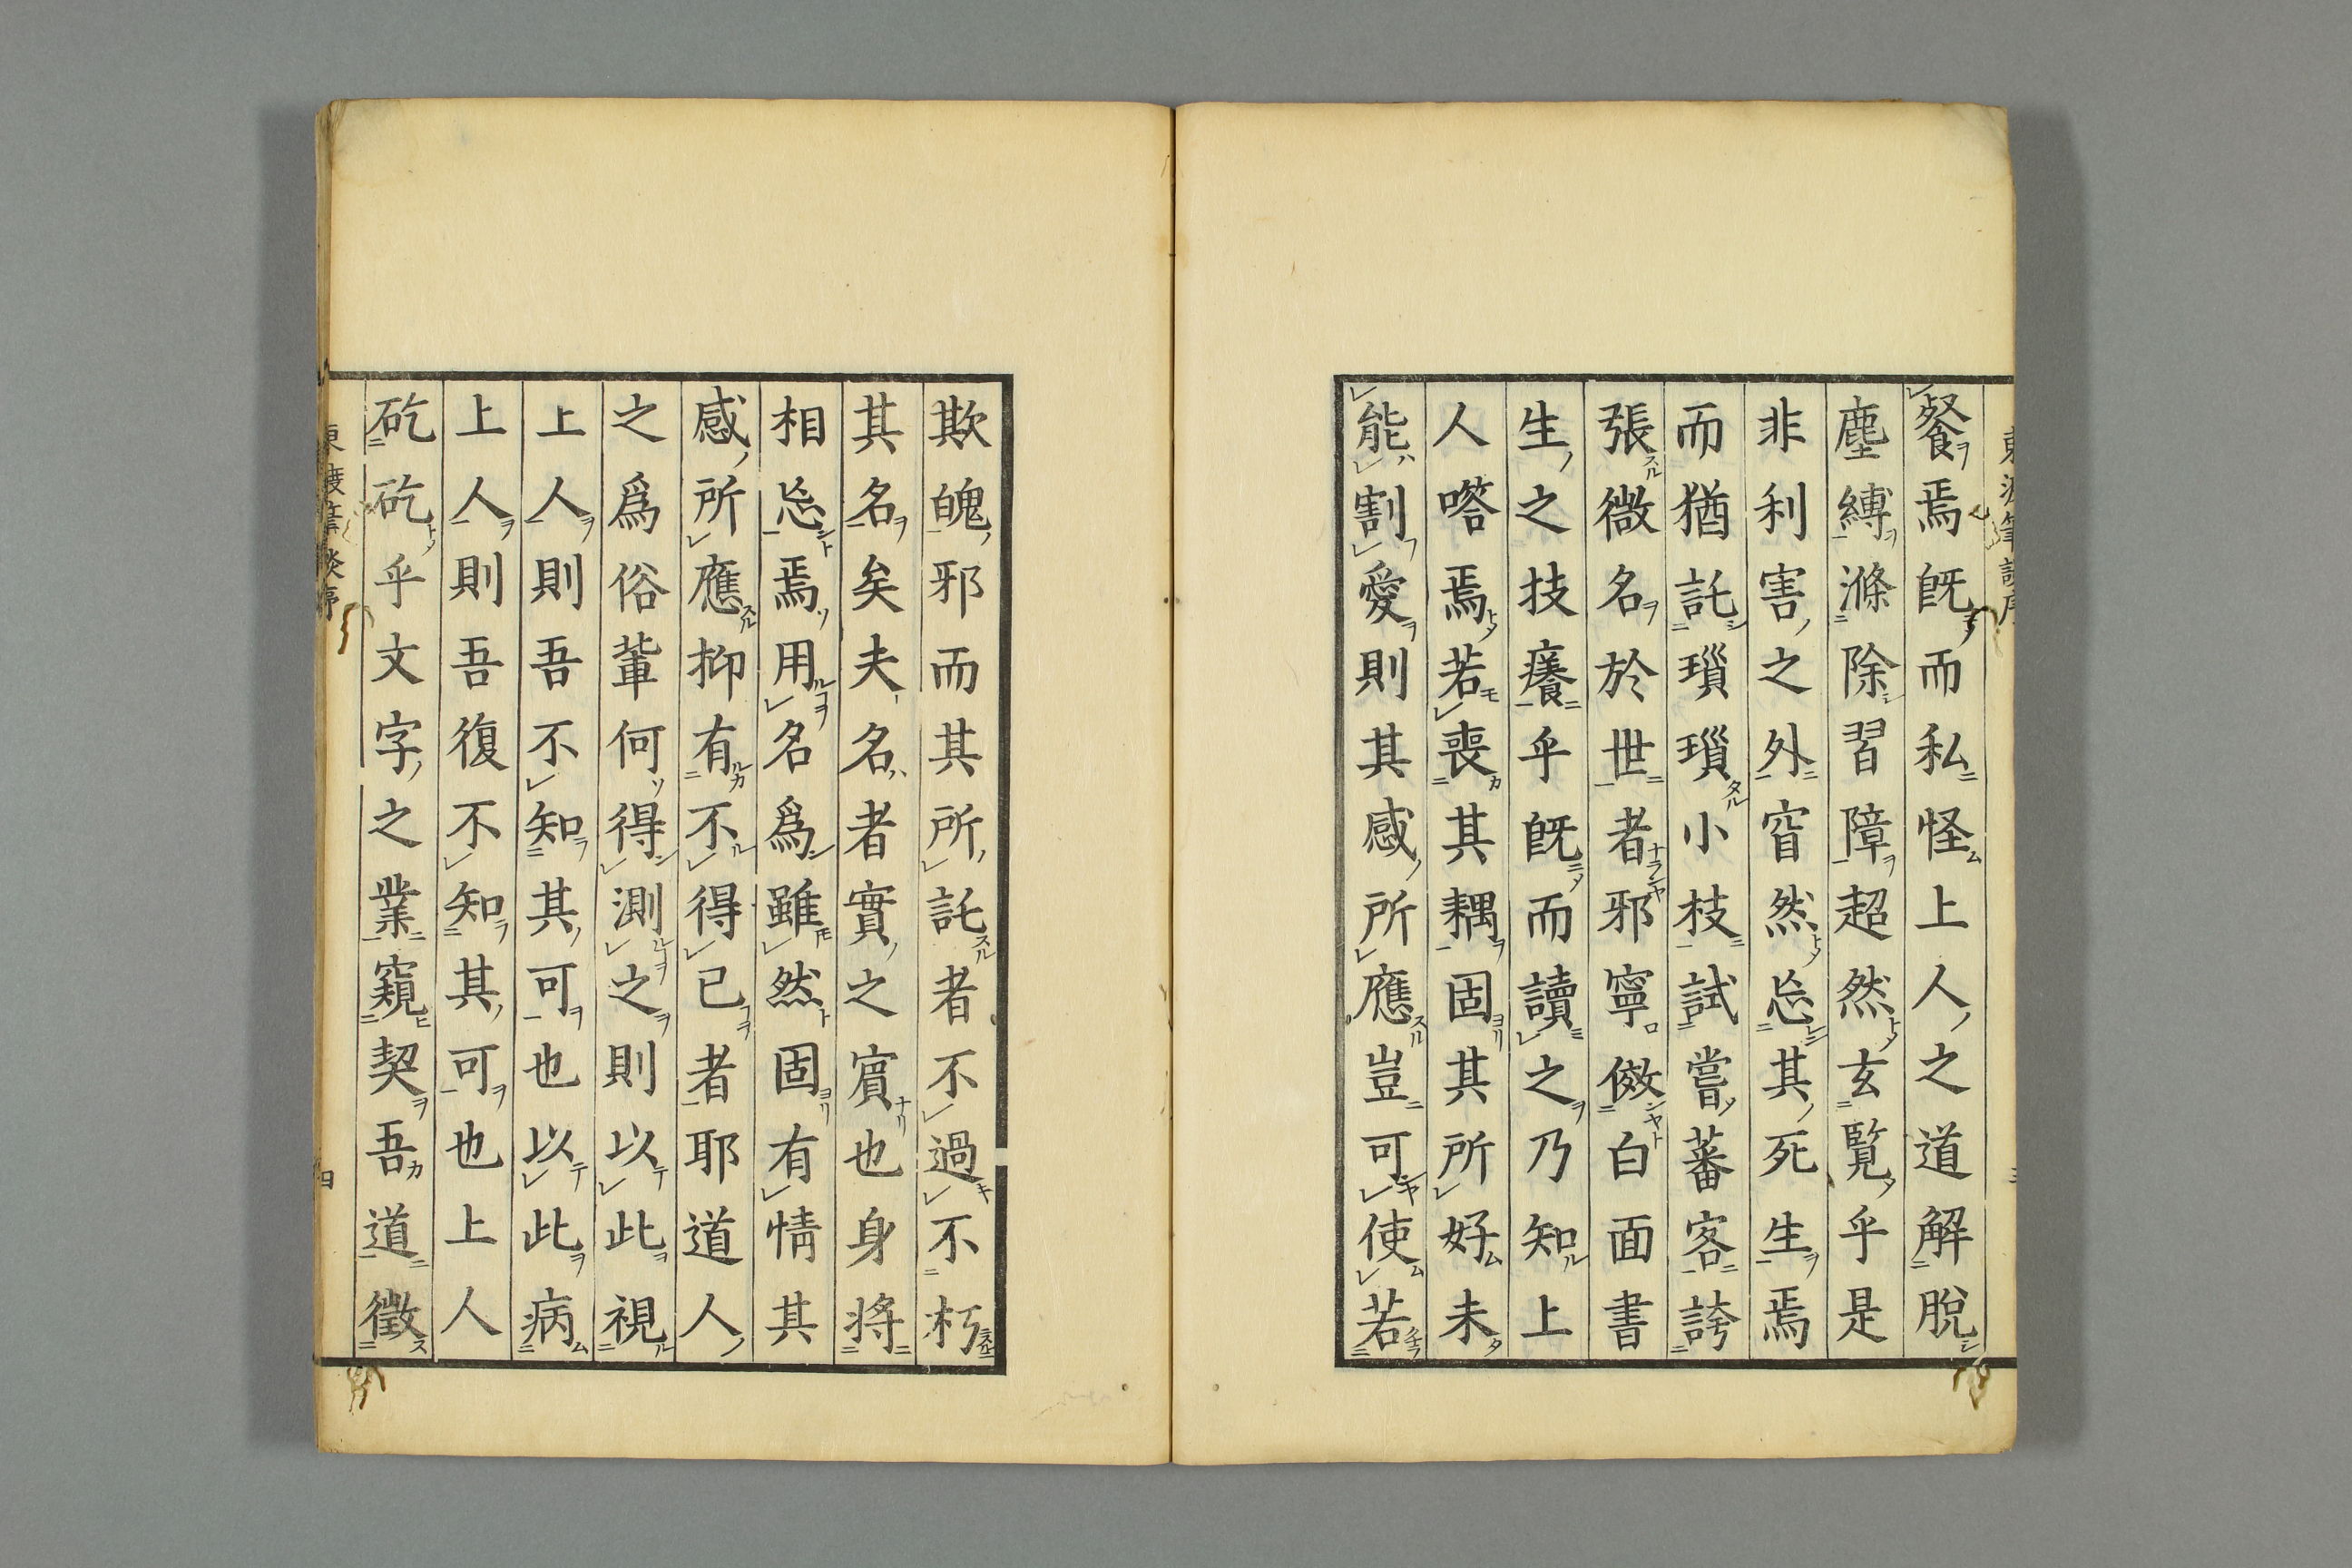 餐焉旣而私怪上人之道解脫
塵縛滌除習障超然玄覽乎是
非利害之外窅然忘其死生焉
而猶託瑣瑣小枝試嘗蕃客誇
張微名於世者邪寧傚白面書
生之技癢乎旣而讀之乃知上
人嗒焉若喪其耦固其所好未
能割愛則其感所應豈可使若
欺魄邪而其所託者不過不朽
其名矣夫名者實之賓也身將
相忘焉用名爲雖然固有情其
感所應抑有不得已者耶道人
之爲俗輩何得測之則以此視
上人則吾不知其可也以此病
上人則吾復不知其可也上人
矻矻乎文字之業窺契吾道徵
四